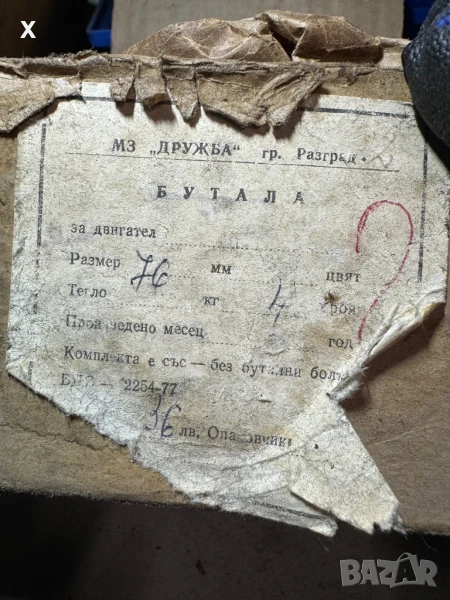 X
МЗ „ДРУЖБА“ гр. Разград
БУТАЛА
за двигател
Размер 76 мм цвят
Тегло кг 4 броя
Произведено месец год
Комплекта е със — без бутални
2254-77
36 лв. Опаковчик
BAZAR